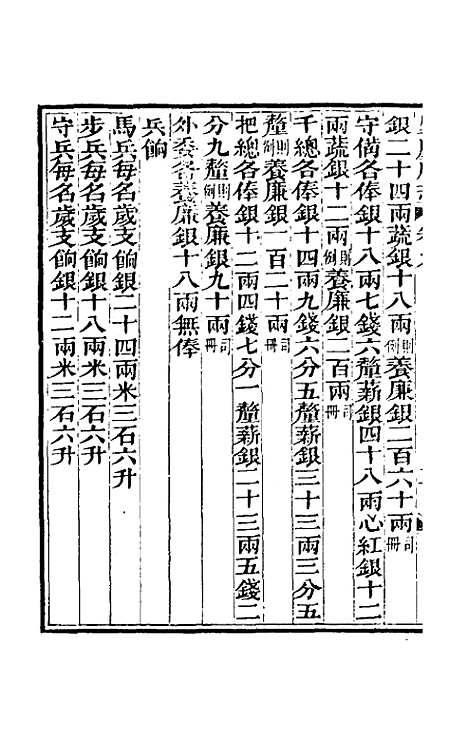 銀二十四兩蔬銀十八兩則例養廉銀二百六十兩司冊
守備各俸銀十八兩七錢六釐薪銀四十八兩心紅銀十二
兩蔬銀十二兩則例養廉銀二百兩司冊
千總各俸銀十四兩九錢六分五釐薪銀三十三兩三分五
釐則例養廉銀一百二十兩司冊
把總各俸銀十二兩四錢七分一釐薪銀二十三兩五錢二
分九釐則例養廉銀九十兩司冊
外委各養廉銀十八兩無俸
兵餉
馬兵每名歲支餉銀二十四兩米三石六升
步兵每名歲支餉銀十八兩米三石六升
守兵每名歲支餉銀十二兩米三石六升